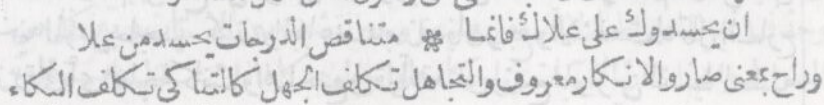 ان يحسدوك على علاك فانما * متناقص الدرجات يحسد من علا
وراح بمعنى صار والانكار معروف والتجاهل تكلف الجهل كالتباكى تكلف البكاء